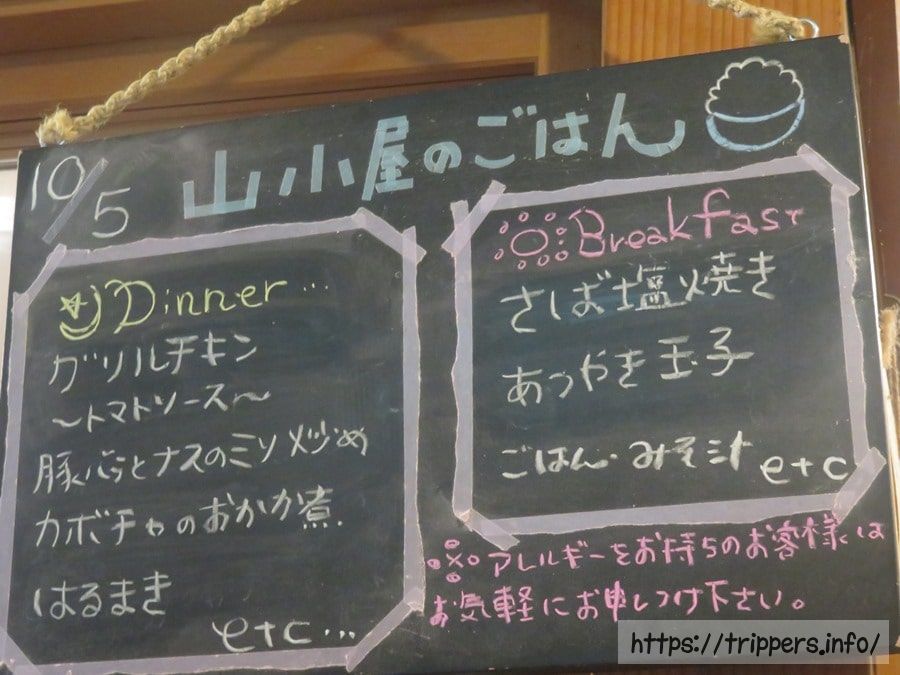 10/5 山小屋のごはん
Dinner...
グリルチキン
～トマトソース～
豚バラとナスのミソ炒め
カボチャのおかか煮
はるまき
etc...
Breakfast
さば塩焼き
あつやき玉子
ごはん・みそ汁 etc
※アレルギーをお持ちのお客様は
お気軽にお申しつけ下さい。
https://trippers.info/